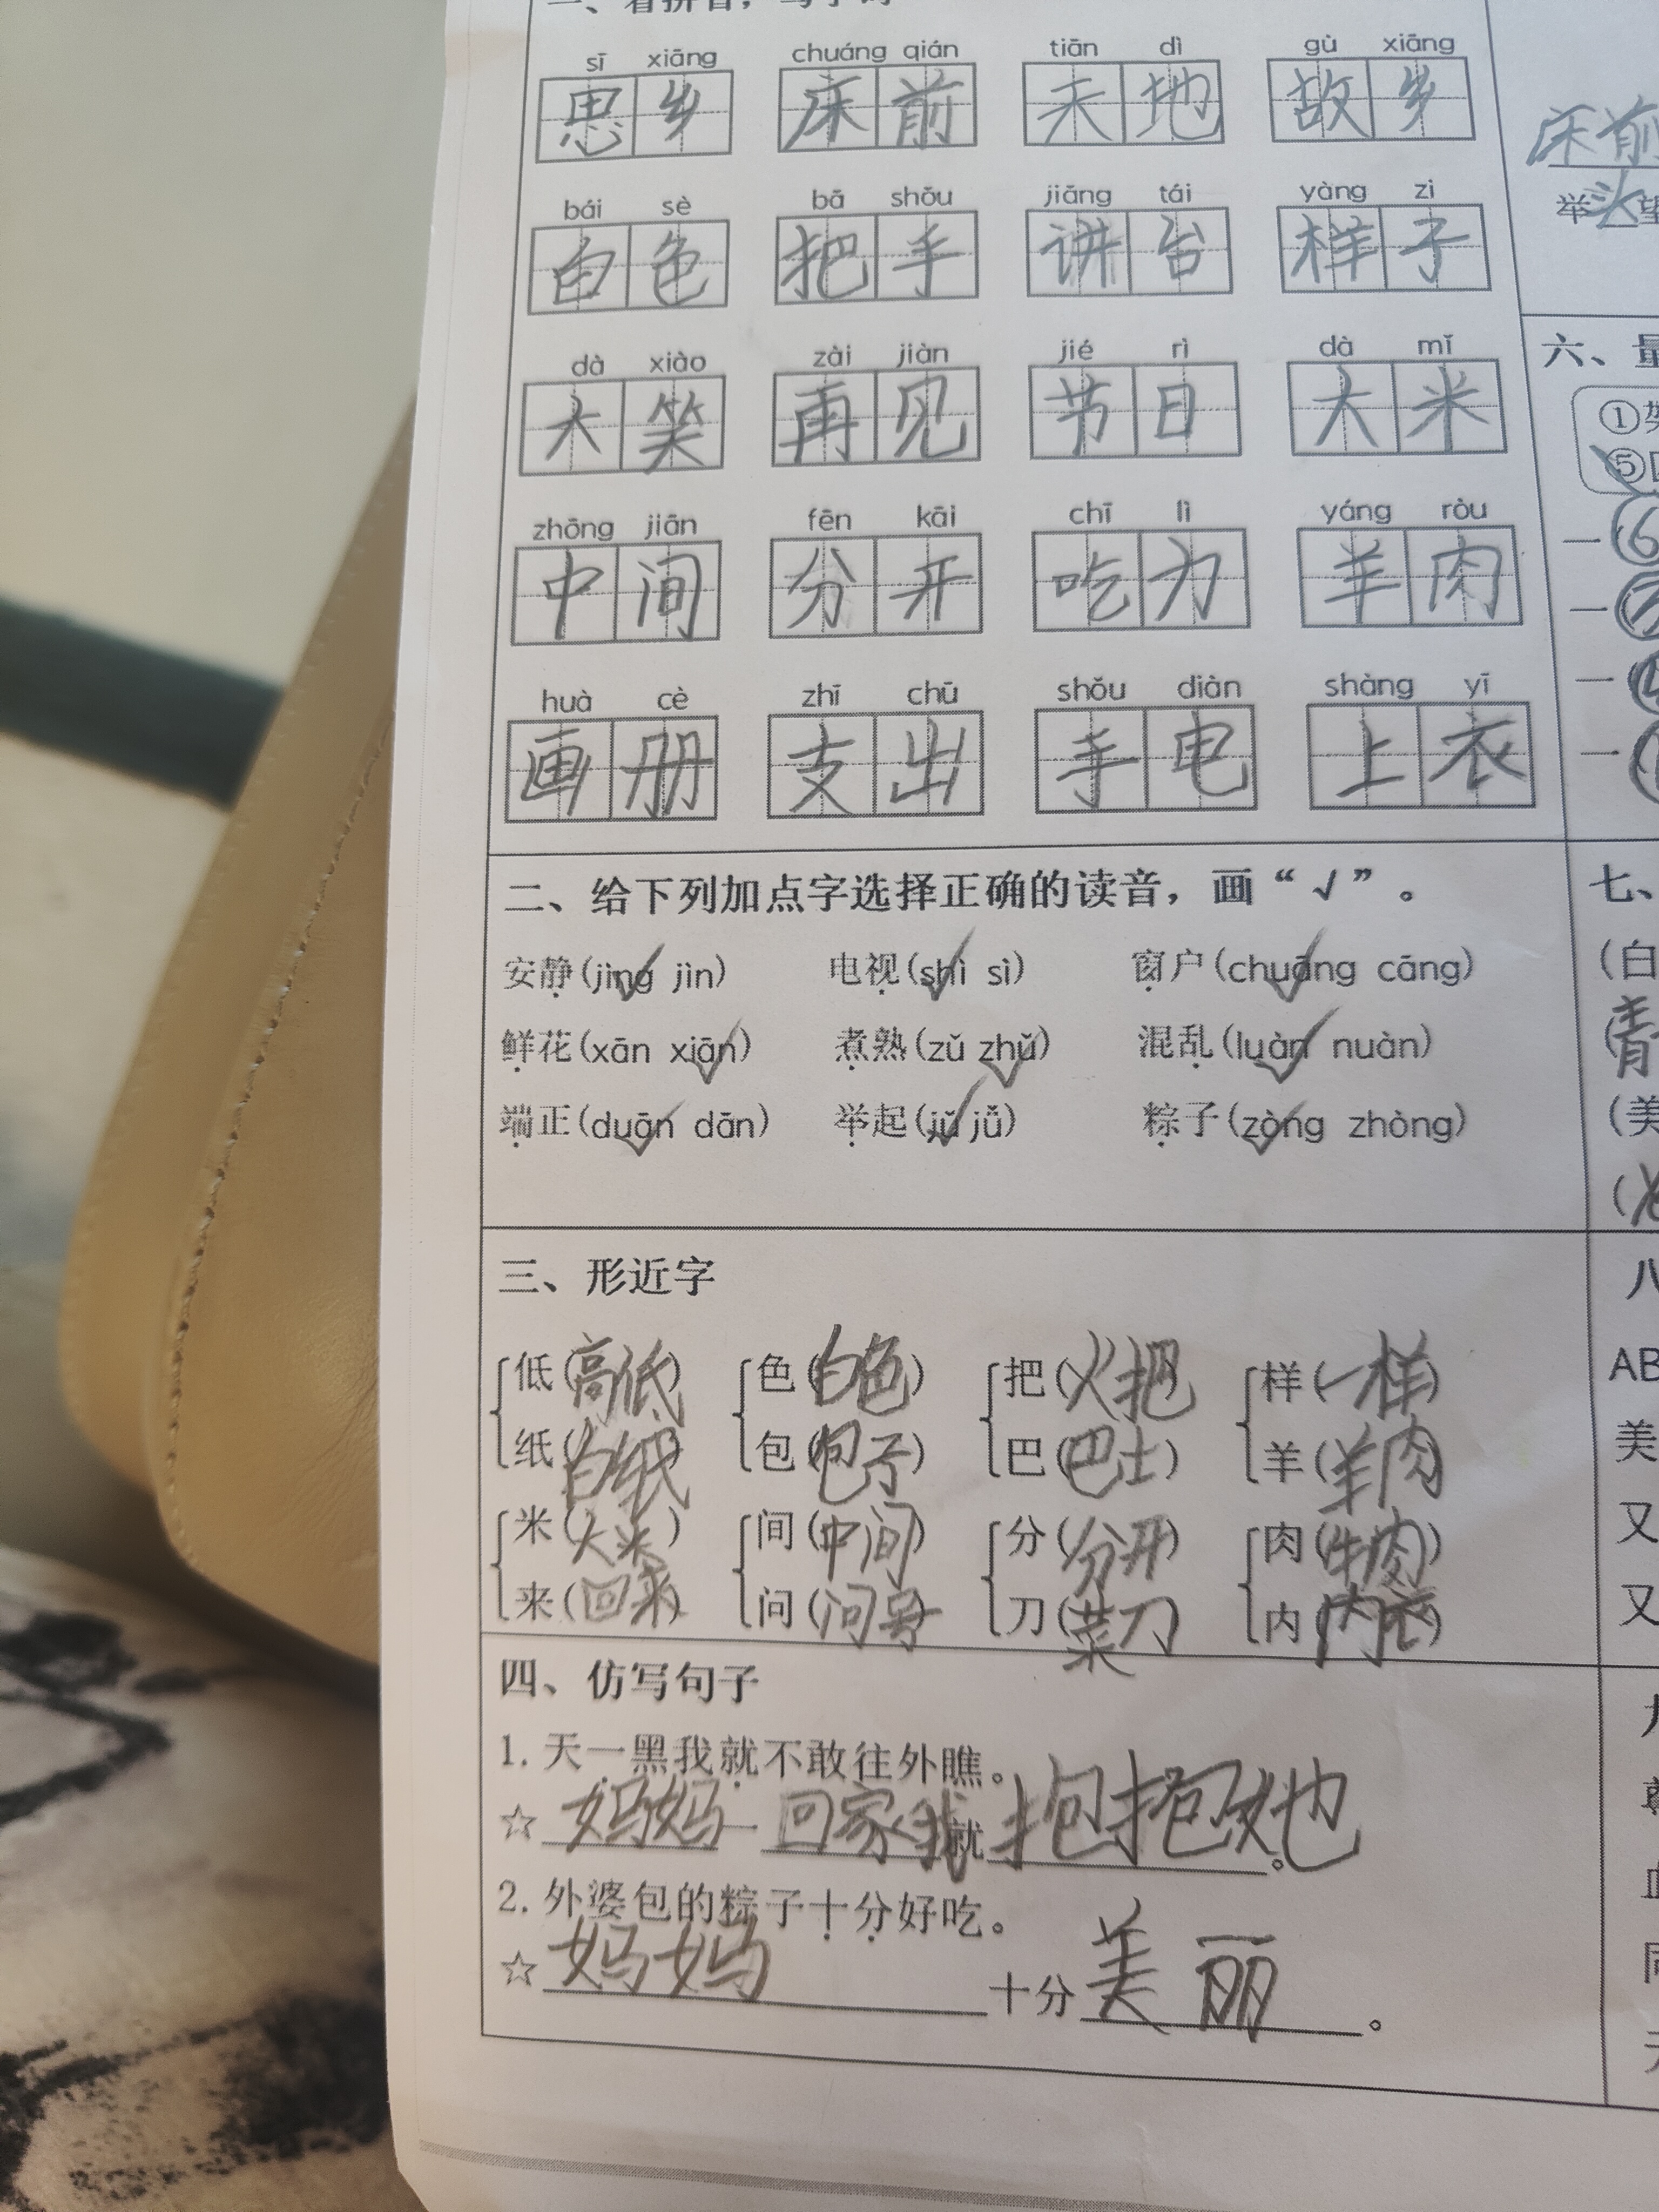 sī xiāng chuáng qián tiān dì gù xiāng
思乡 床前 天地 故乡
bái sè bā shǒu jiǎng tái yàng zi
白色 把手 讲台 样子
dà xiào zài jiàn jié rì dà mǐ
大笑 再见 节日 大米
zhōng jiān fēn kāi chī lì yáng ròu
中间 分开 吃力 羊肉
huà cè zhī chū shǒu diàn shàng yī
画册 支出 手电 上衣
二、给下列加点字选择正确的读音，画“√”。
安静(jìng jìn) 电视(shì sì) 窗户(chuāng cāng)
鲜花(xān xiān) 煮熟(zǔ zhǔ) 混乱(luàn nuàn)
端正(duān dān) 举起(jǔ jǚ) 粽子(zòng zhòng)
三、形近字
低(高低) 色(白色) 把(火把) 样(一样)
纸(白纸) 包(包子) 巴(巴士) 羊(羊肉)
米(大米) 间(中间) 分(分开) 肉(牛肉)
来(回来) 问(问号) 刀(菜刀) 内(内衣)
四、仿写句子
1. 天一黑我就不敢往外瞧。
☆妈妈一回家我就抱抱她。
2. 外婆包的粽子十分好吃。
☆妈妈十分美丽。
床前
举头望
六、
①
⑤
一⑥
一
一
一
七、
(白
(青
(美
(
八
AB
美
又
又